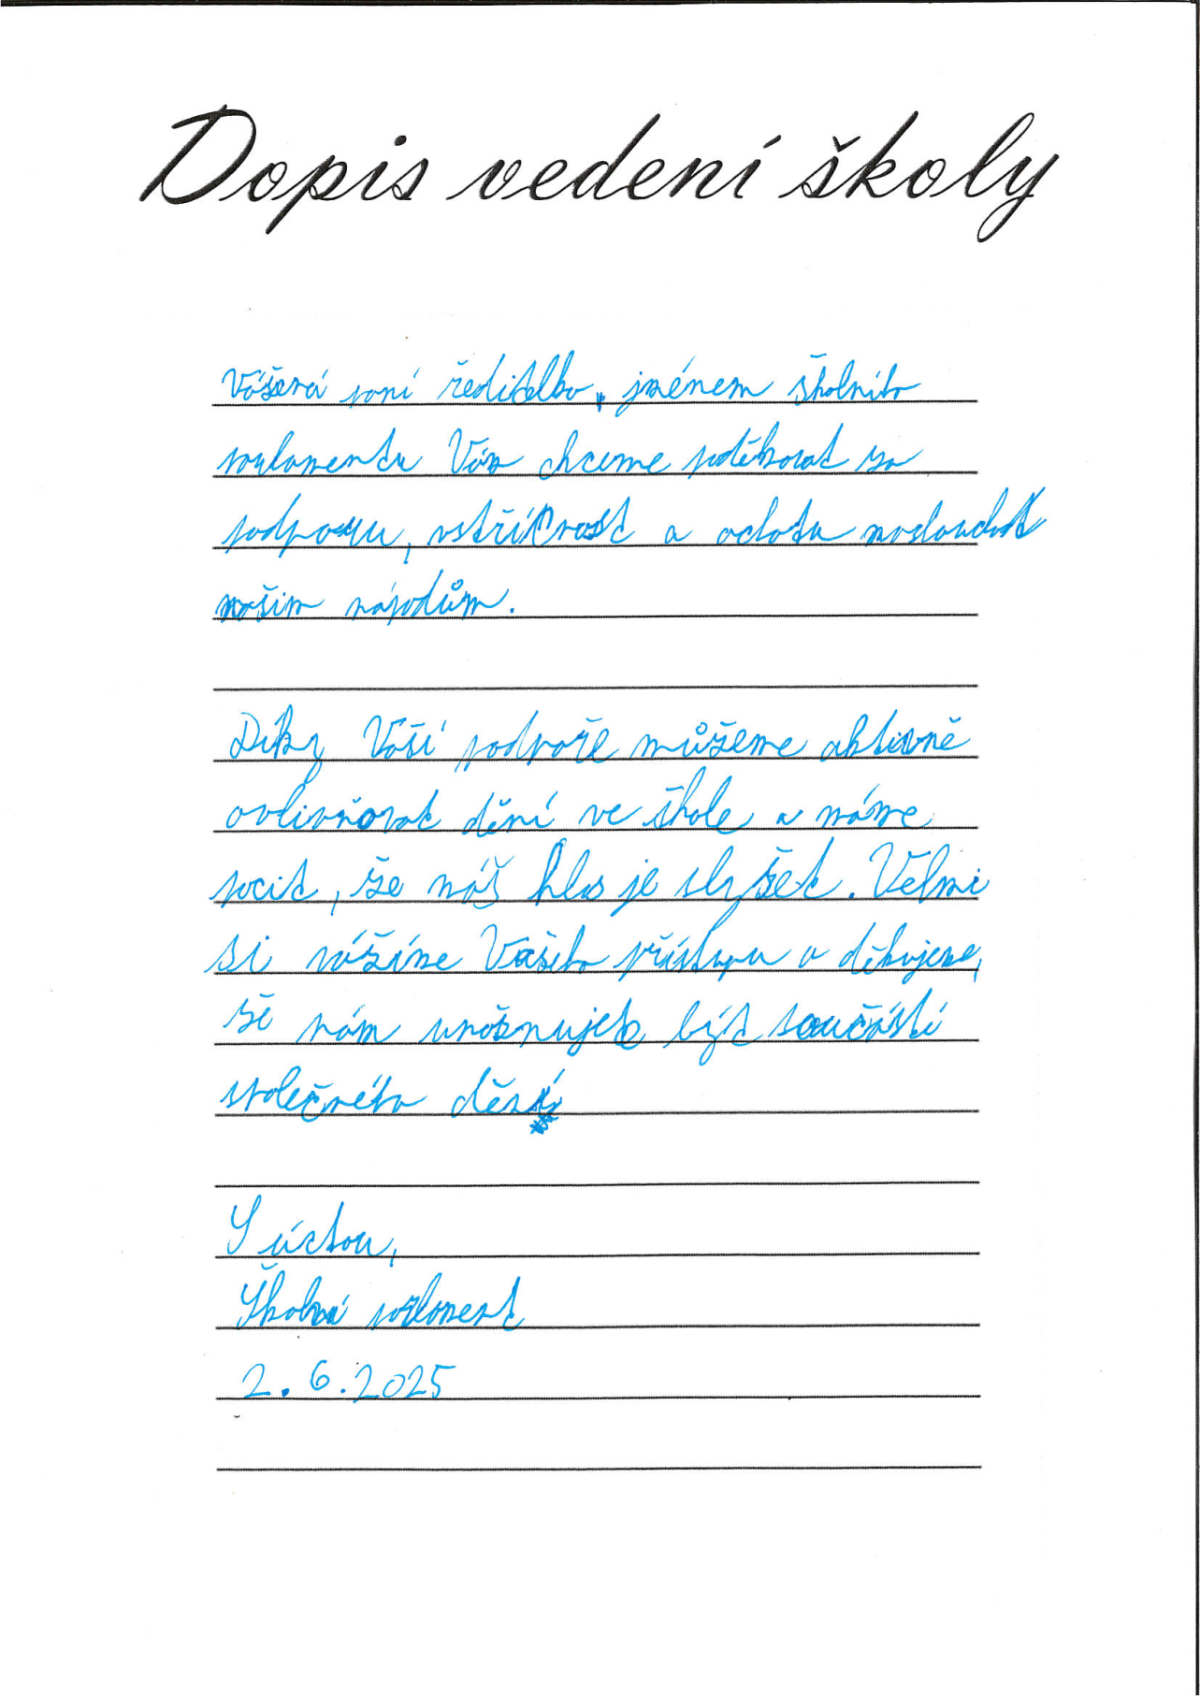 Dopis vedení školy
Vážená paní ředitelko, jménem školního
parlamentu Vám chceme poděkovat za
podporu, vstřícnost a ochotu naslouchat
našim nápadům.
Díky Vaší podpoře můžeme aktivně
ovlivňovat dění ve škole a máme
pocit, že náš hlas je slyšet. Velmi
si vážíme Vašeho přístupu a děkujeme,
že nám umožňujete být součástí
společného dění
S úctou,
Školní parlament
2. 6. 2025